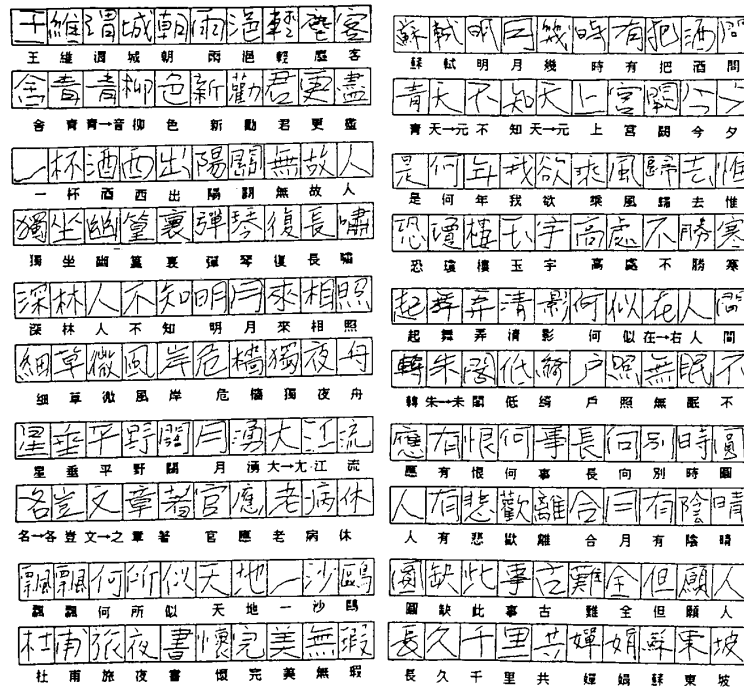 王維渭城朝雨浥輕塵客
王 維 渭 城 朝 雨 浥 輕 塵 客
舍青青柳色新勸君更盡
舍 青 青→音 柳 色 新 勸 君 更 盡
一杯酒西出陽關無故人
一 杯 酒 西 出 陽 關 無 故 人
獨坐幽篁裏彈琴復長嘯
獨 坐 幽 篁 裏 彈 琴 復 長 嘯
深林人不知明月來相照
深 林 人 不 知 明 月 來 相 照
細草微風岸危檣獨夜舟
細 草 微 風 岸 危 檣 獨 夜 舟
星垂平野闊月湧大江流
星 垂 平 野 闊 月 湧 大→尢 江 流
名豈文章著官應老病休
名→各 豈 文→之 章 著 官 應 老 病 休
飄飄何所似天地一沙鷗
飄 飄 何 所 似 天 地 一 沙 鷗
杜甫旅夜書懷完美無瑕
杜 甫 旅 夜 書 懷 完 美 無 瑕
蘇軾明月幾時有把酒問
蘇 軾 明 月 幾 時 有 把 酒 問
青天不知天上宮闕今夕
青 天→元 不 知 天→元 上 宮 闕 今 夕
是何年我欲乘風歸去惟
是 何 年 我 欲 乘 風 歸 去 惟
恐瓊樓玉宇高處不勝寒
恐 瓊 樓 玉 宇 高 處 不 勝 寒
起舞弄清影何似在人間
起 舞 弄 清 影 何 似 在→右 人 間
轉朱閣低綺戶照無眠不
轉 朱→未 閣 低 綺 戶 照 無 眠 不
應有恨何事長向別時圓
應 有 恨 何 事 長 向 別 時 圓
人有悲歡離合月有陰晴
人 有 悲 歡 離 合 月 有 陰 晴
圓缺此事古難全但願人
圓 缺 此 事 古 難 全 但 願 人
長久千里共嬋娟蘇東坡
長 久 千 里 共 嬋 娟 蘇 東 坡